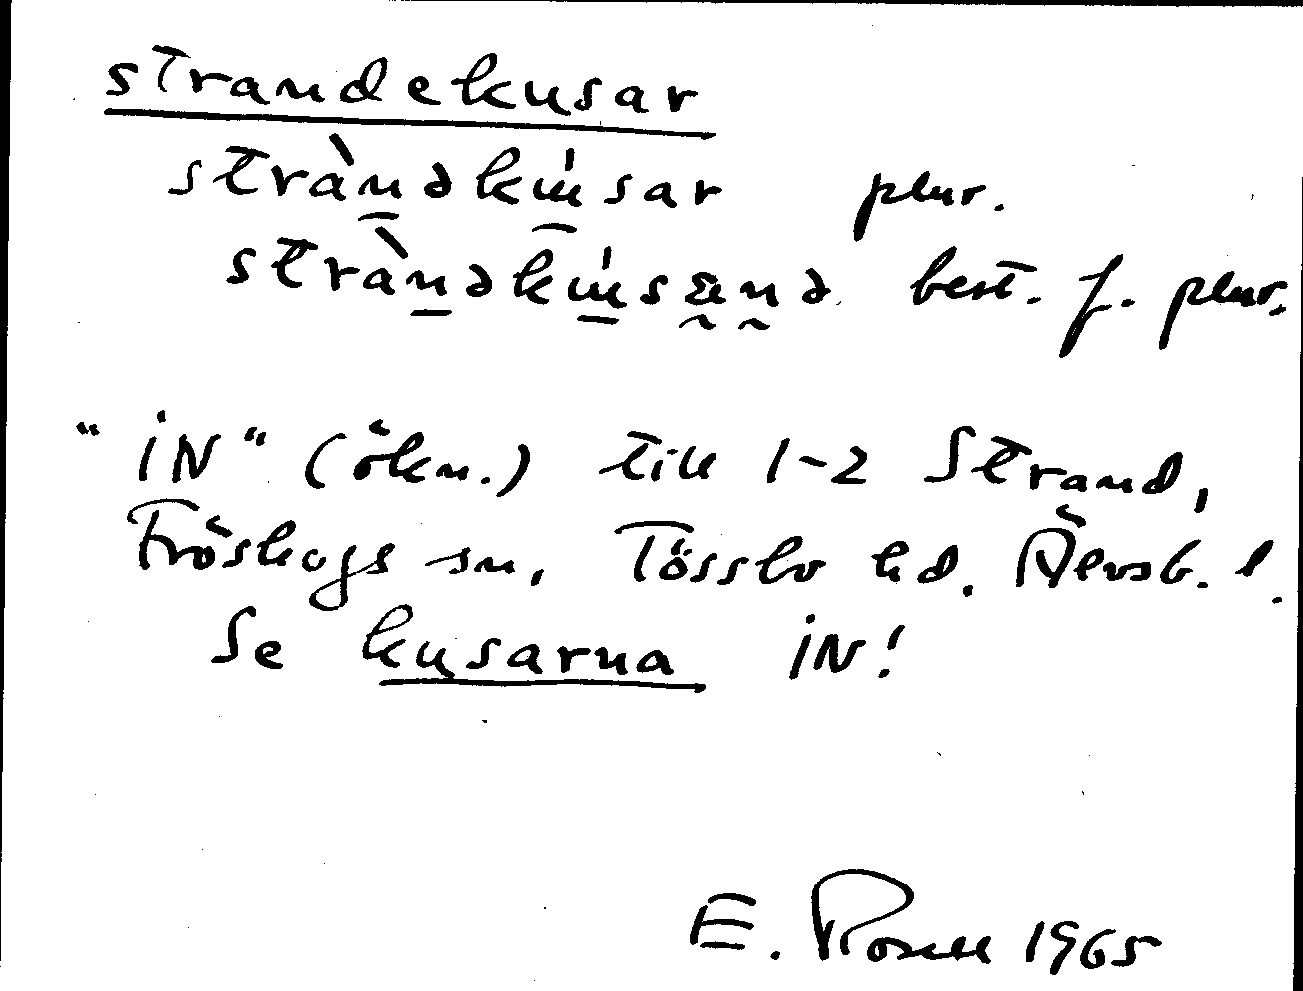 strandekusar
stràndəkusar plur.
stràndəkusænə best. f. plur.
"iN" (ökn.) till 1-2 Strand,
Fröskogs sn, Tössbo hd. Älvsb. l.
Se kusarna iN!
E. Rosell 1965